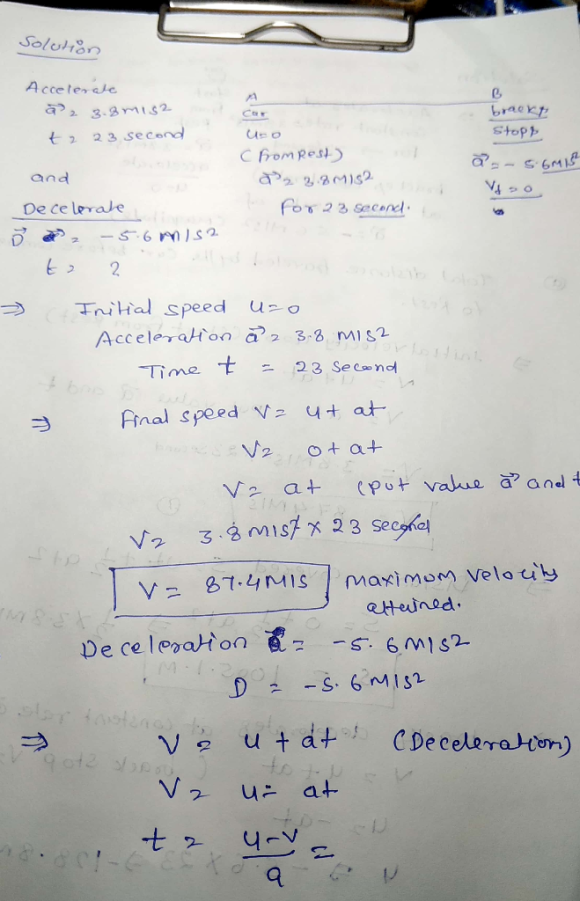 Solution
Accelerate
a⃗ = 3.8 M/S2
t = 23 second
and
Decelerate
D⃗ = -5.6 M/S2
t = ?
A
Car
U=0
(from Rest)
a⃗ = 3.8 M/S2
for 23 second.
B
Stops
a⃗ = - 5.6 M/S2
Vf = 0
⇒ Initial speed u=0
Acceleration a⃗ = 3.8 M/S2
Time t = 23 Second
⇒ final speed V= u+ at
V= 0+at
V= at (put value a⃗ and t
V= 3.8 M/S2 x 23 second
V= 87.4 M/S maximum velocity
attained.
Deceleration a = -5.6 M/S2
D = -5.6 M/S2
⇒ V = u + at (Deceleration)
V = u - at
t = u-v/a =